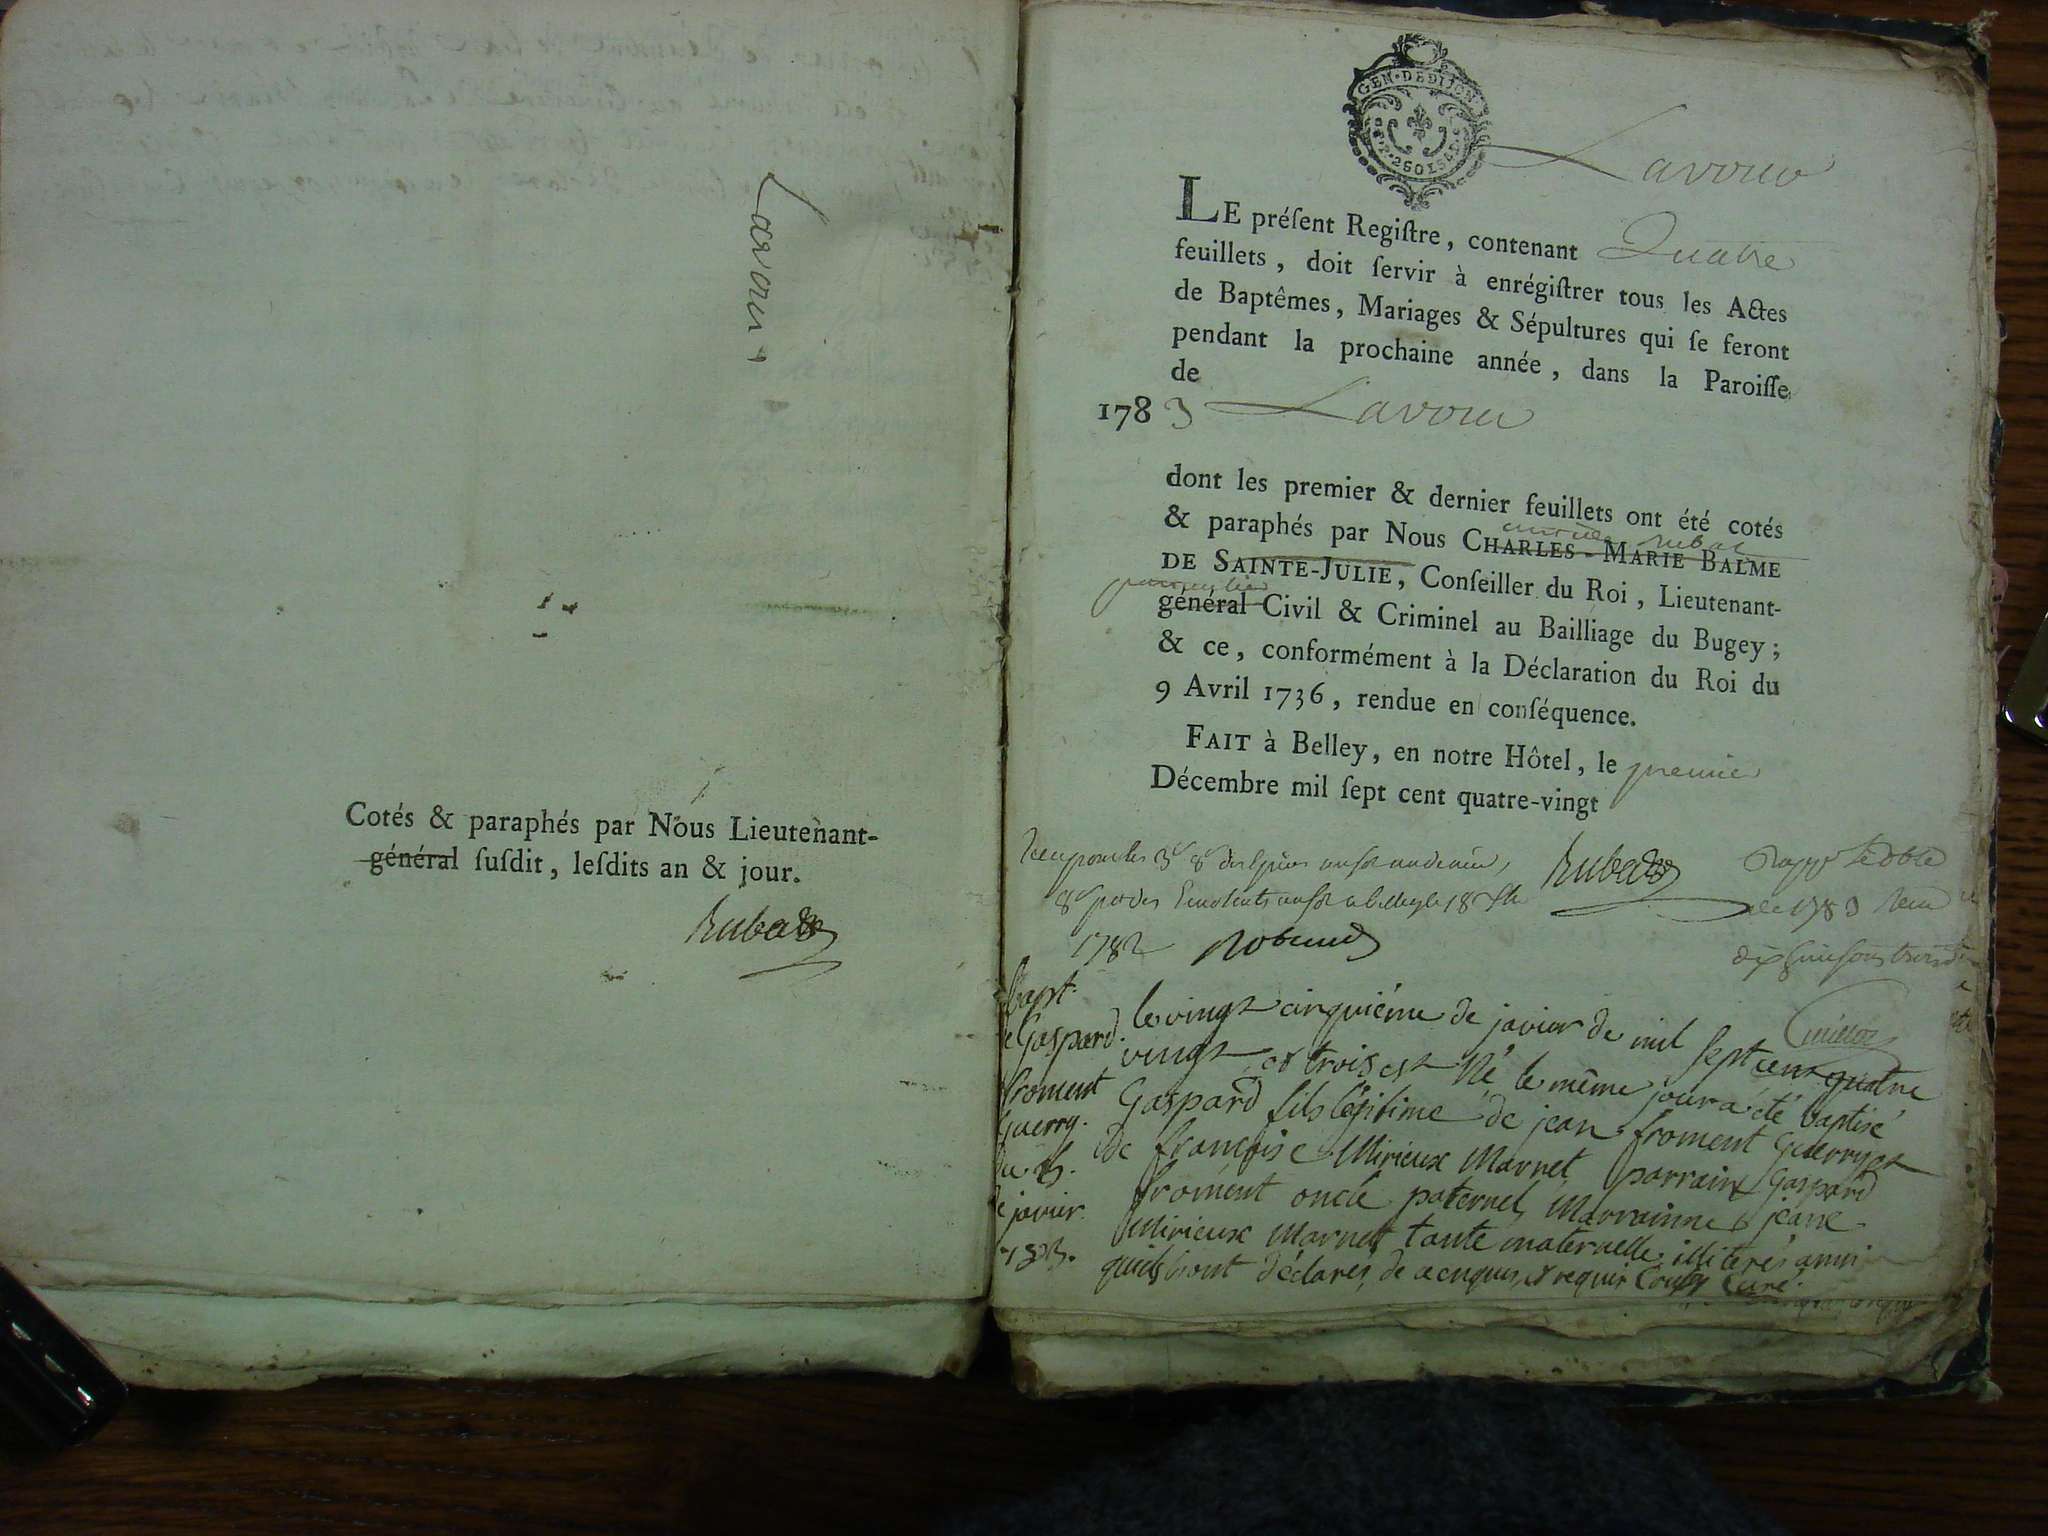 Lavour
Cotés & paraphés par Nous Lieutenant-
général ſuſdit, leſdits an & jour.
Rubat
GEN·DEDIJON
Lavour
LE préſent Regiſtre, contenant Quatre
feuillets, doit ſervir à enrégiſtrer tous les Actes
de Baptêmes, Mariages & Sépultures qui ſe feront
pendant la prochaine année, dans la Paroiſſe
de
1783 Lavour
dont les premier & dernier feuillets ont été cotés
& paraphés par Nous CHARLES-MARIE BALME
DE SAINTE-JULIE, Conſeiller du Roi, Lieutenant-
particulier
général Civil & Criminel au Bailliage du Bugey;
& ce, conformément à la Déclaration du Roi du
9 Avril 1736, rendue en conſéquence.
FAIT à Belley, en notre Hôtel, le premier
Décembre mil ſept cent quatre-vingt
Rubat
1782
de 1783
bapt.
de Gaspard
froment
Guerry.
du 25.
de javier
1783.
le vingt cinquiéme de javier de mil Sept cent quatre
vingt et trois est Né le même jour a été baptisé
Gaspard fils légitime de jean froment Guerry et
de françoise Mirieux Marnet, parrain Gaspard
froment oncle paternel, Marrainne jeane
Mirieux Marnet tante maternelle. illiterés ainsi
quils sont déclarés, de ce enquis, et requis Curé.